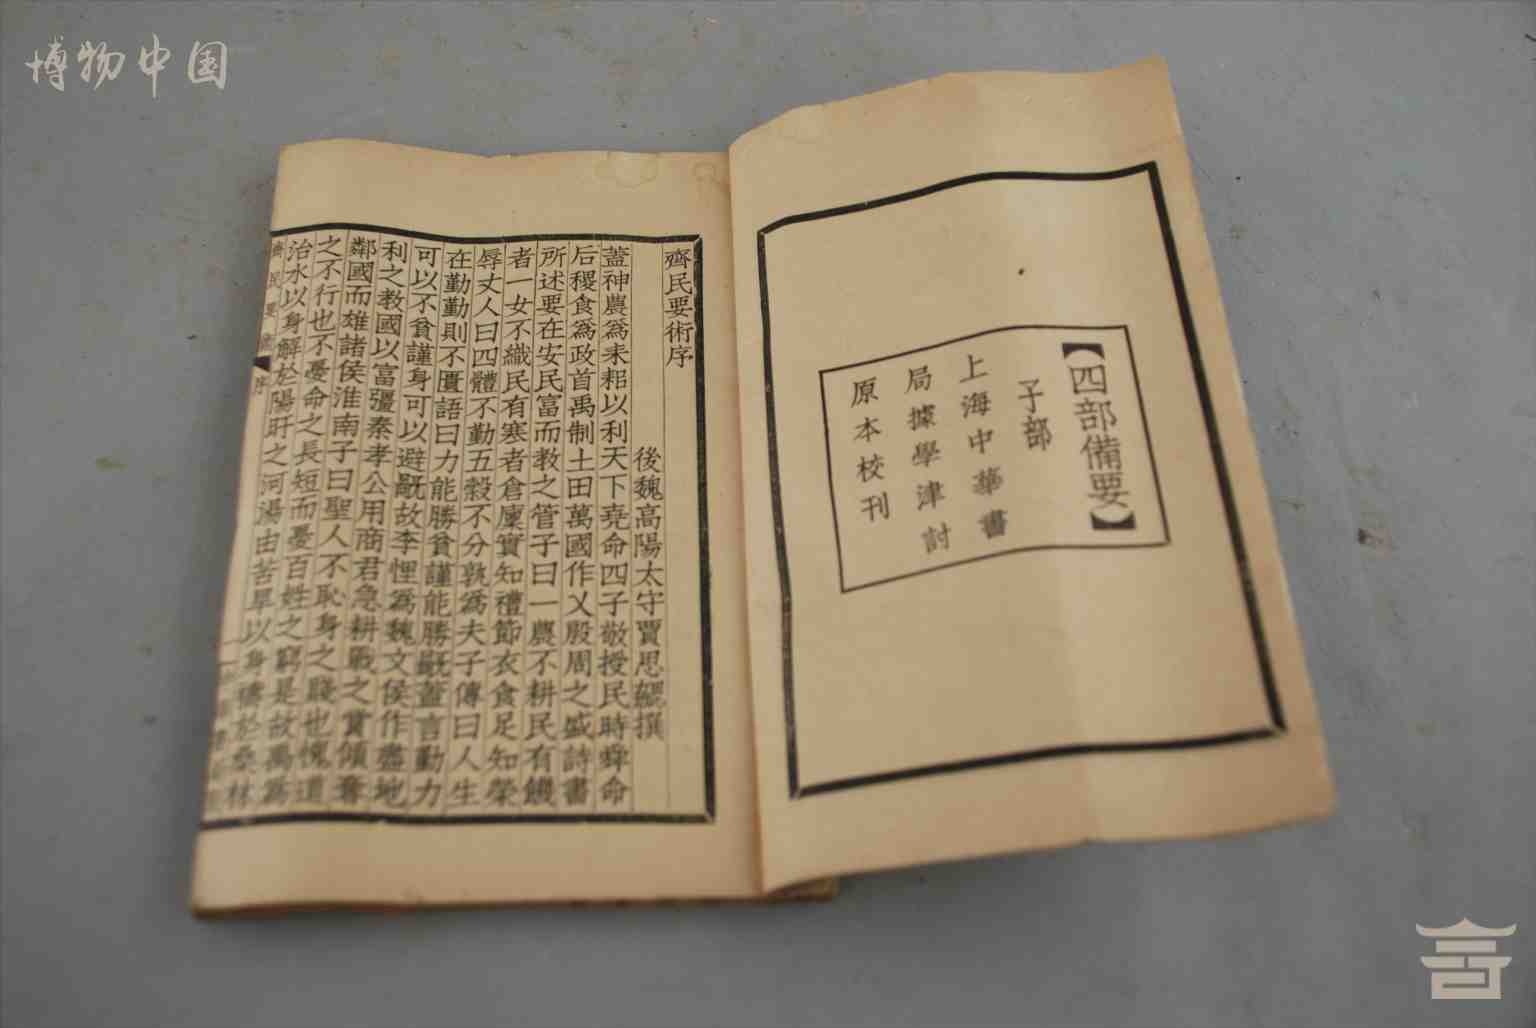 博物中国
【四部備要】
子部
上海中華書
局據學津討
原本校刊
齊民要術序
後魏高陽太守賈思勰撰
蓋神農爲耒耜以利天下堯命四子敬授民時舜命
后稷食爲政首禹制土田萬國作乂殷周之盛詩書
所述要在安民富而教之管子曰一農不耕民有饑
者一女不織民有寒者倉廩實知禮節衣食足知榮
辱丈人曰四體不勤五穀不分孰爲夫子傳曰人生
在勤勤則不匱語曰力能勝貧謹能勝禍蓋言勤力
可以不貧謹身可以避禍故李悝爲魏文侯作盡地
利之教國以富彊秦孝公用商君急耕戰之賞傾奪
鄰國而雄諸侯淮南子曰聖人不恥身之賤也愧道
之不行也不憂命之長短而憂百姓之窮是故禹爲
治水以身解於陽盱之河湯由苦旱以身禱於桑林
齊民要術 序